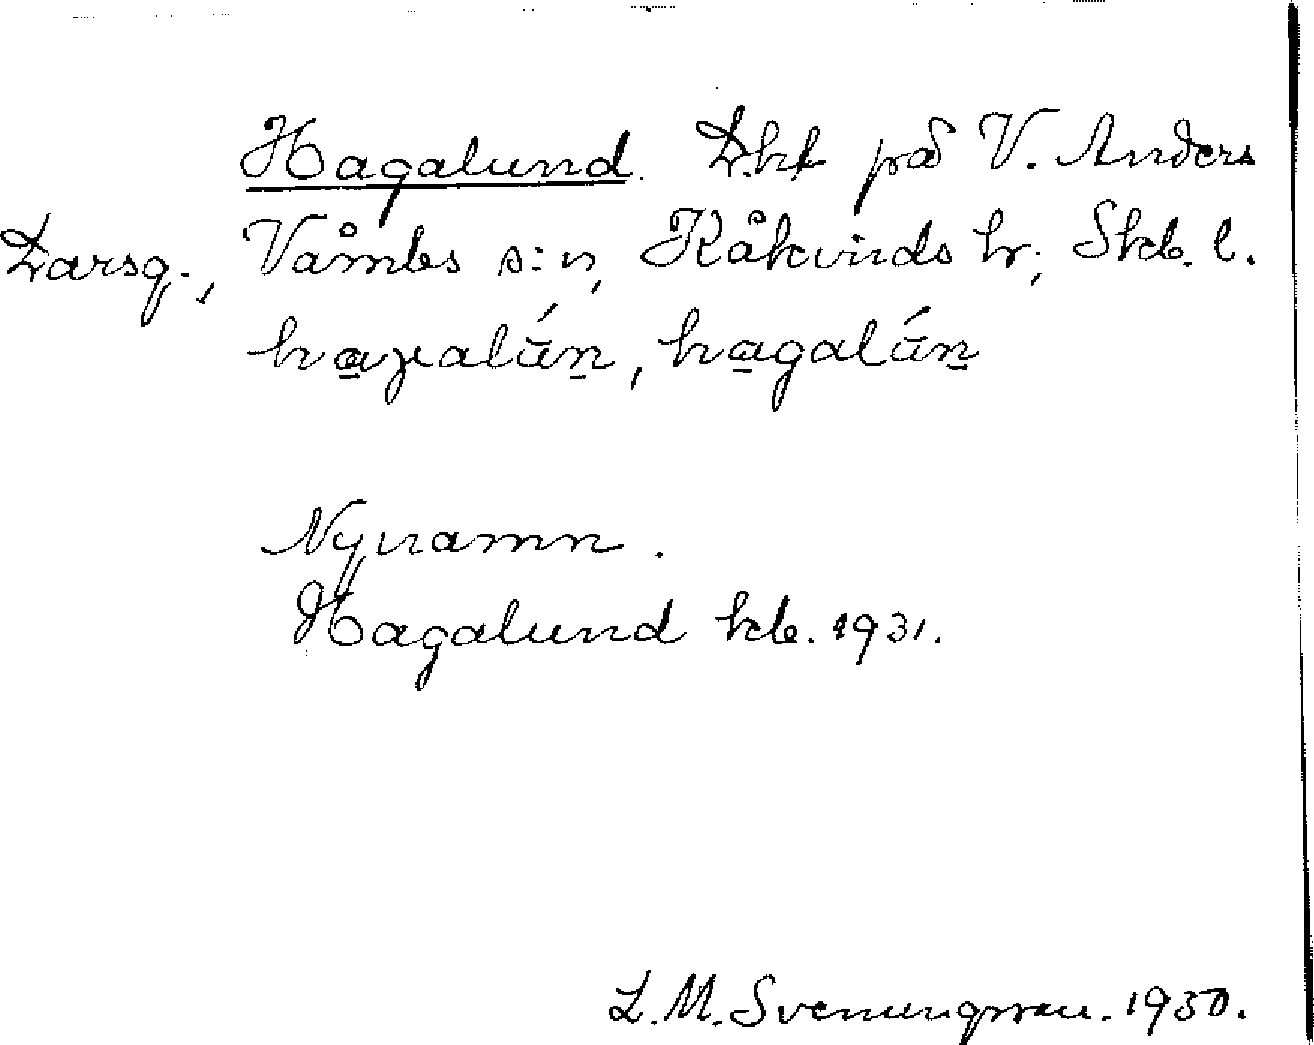 Hagalund. Lht på V. Anders
Larsg., Våmbs s:n, Kåkinds hr; Skb. l.
Nynamn.
Hagalund kb. 1931.
L. M. Svenungsson. 1930.